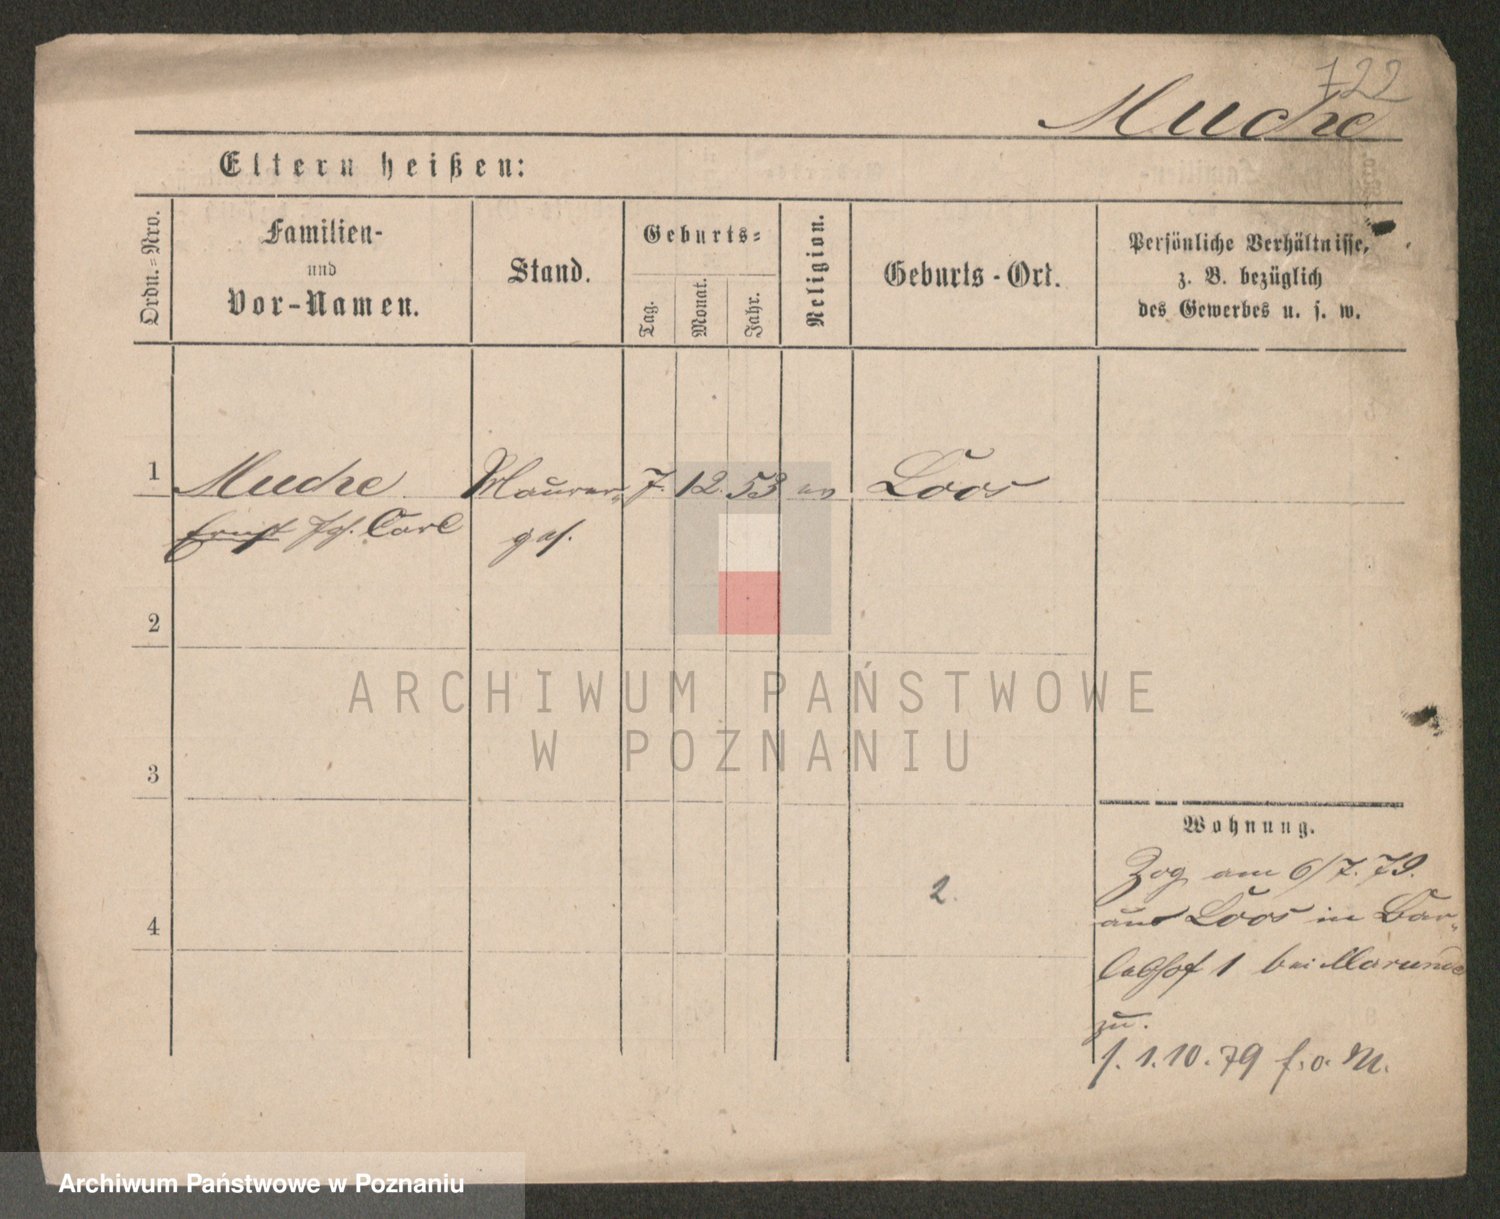 722
Muche
Eltern heißen:
Ordn.-Nro.
Familien-
und
Vor-Namen.
Stand.
Geburts-
Tag.
Monat.
Jahr.
Religion.
Geburts-Ort.
Persönliche Verhältnisse,
z. B. bezüglich
des Gewerbes u. s. w.
1 Muche Maurer- 7. 12. 53 ev Loos
Ernst Carl ges.
2
3
4
ARCHIWUM PAŃSTWOWE
W POZNANIU
Wohnung.
2.
Zog am 6/7. 79.
aus Loos in Bar-
1 bei
zu.
f. 1.10.79 f. o. M.
Archiwum Państwowe w Poznaniu